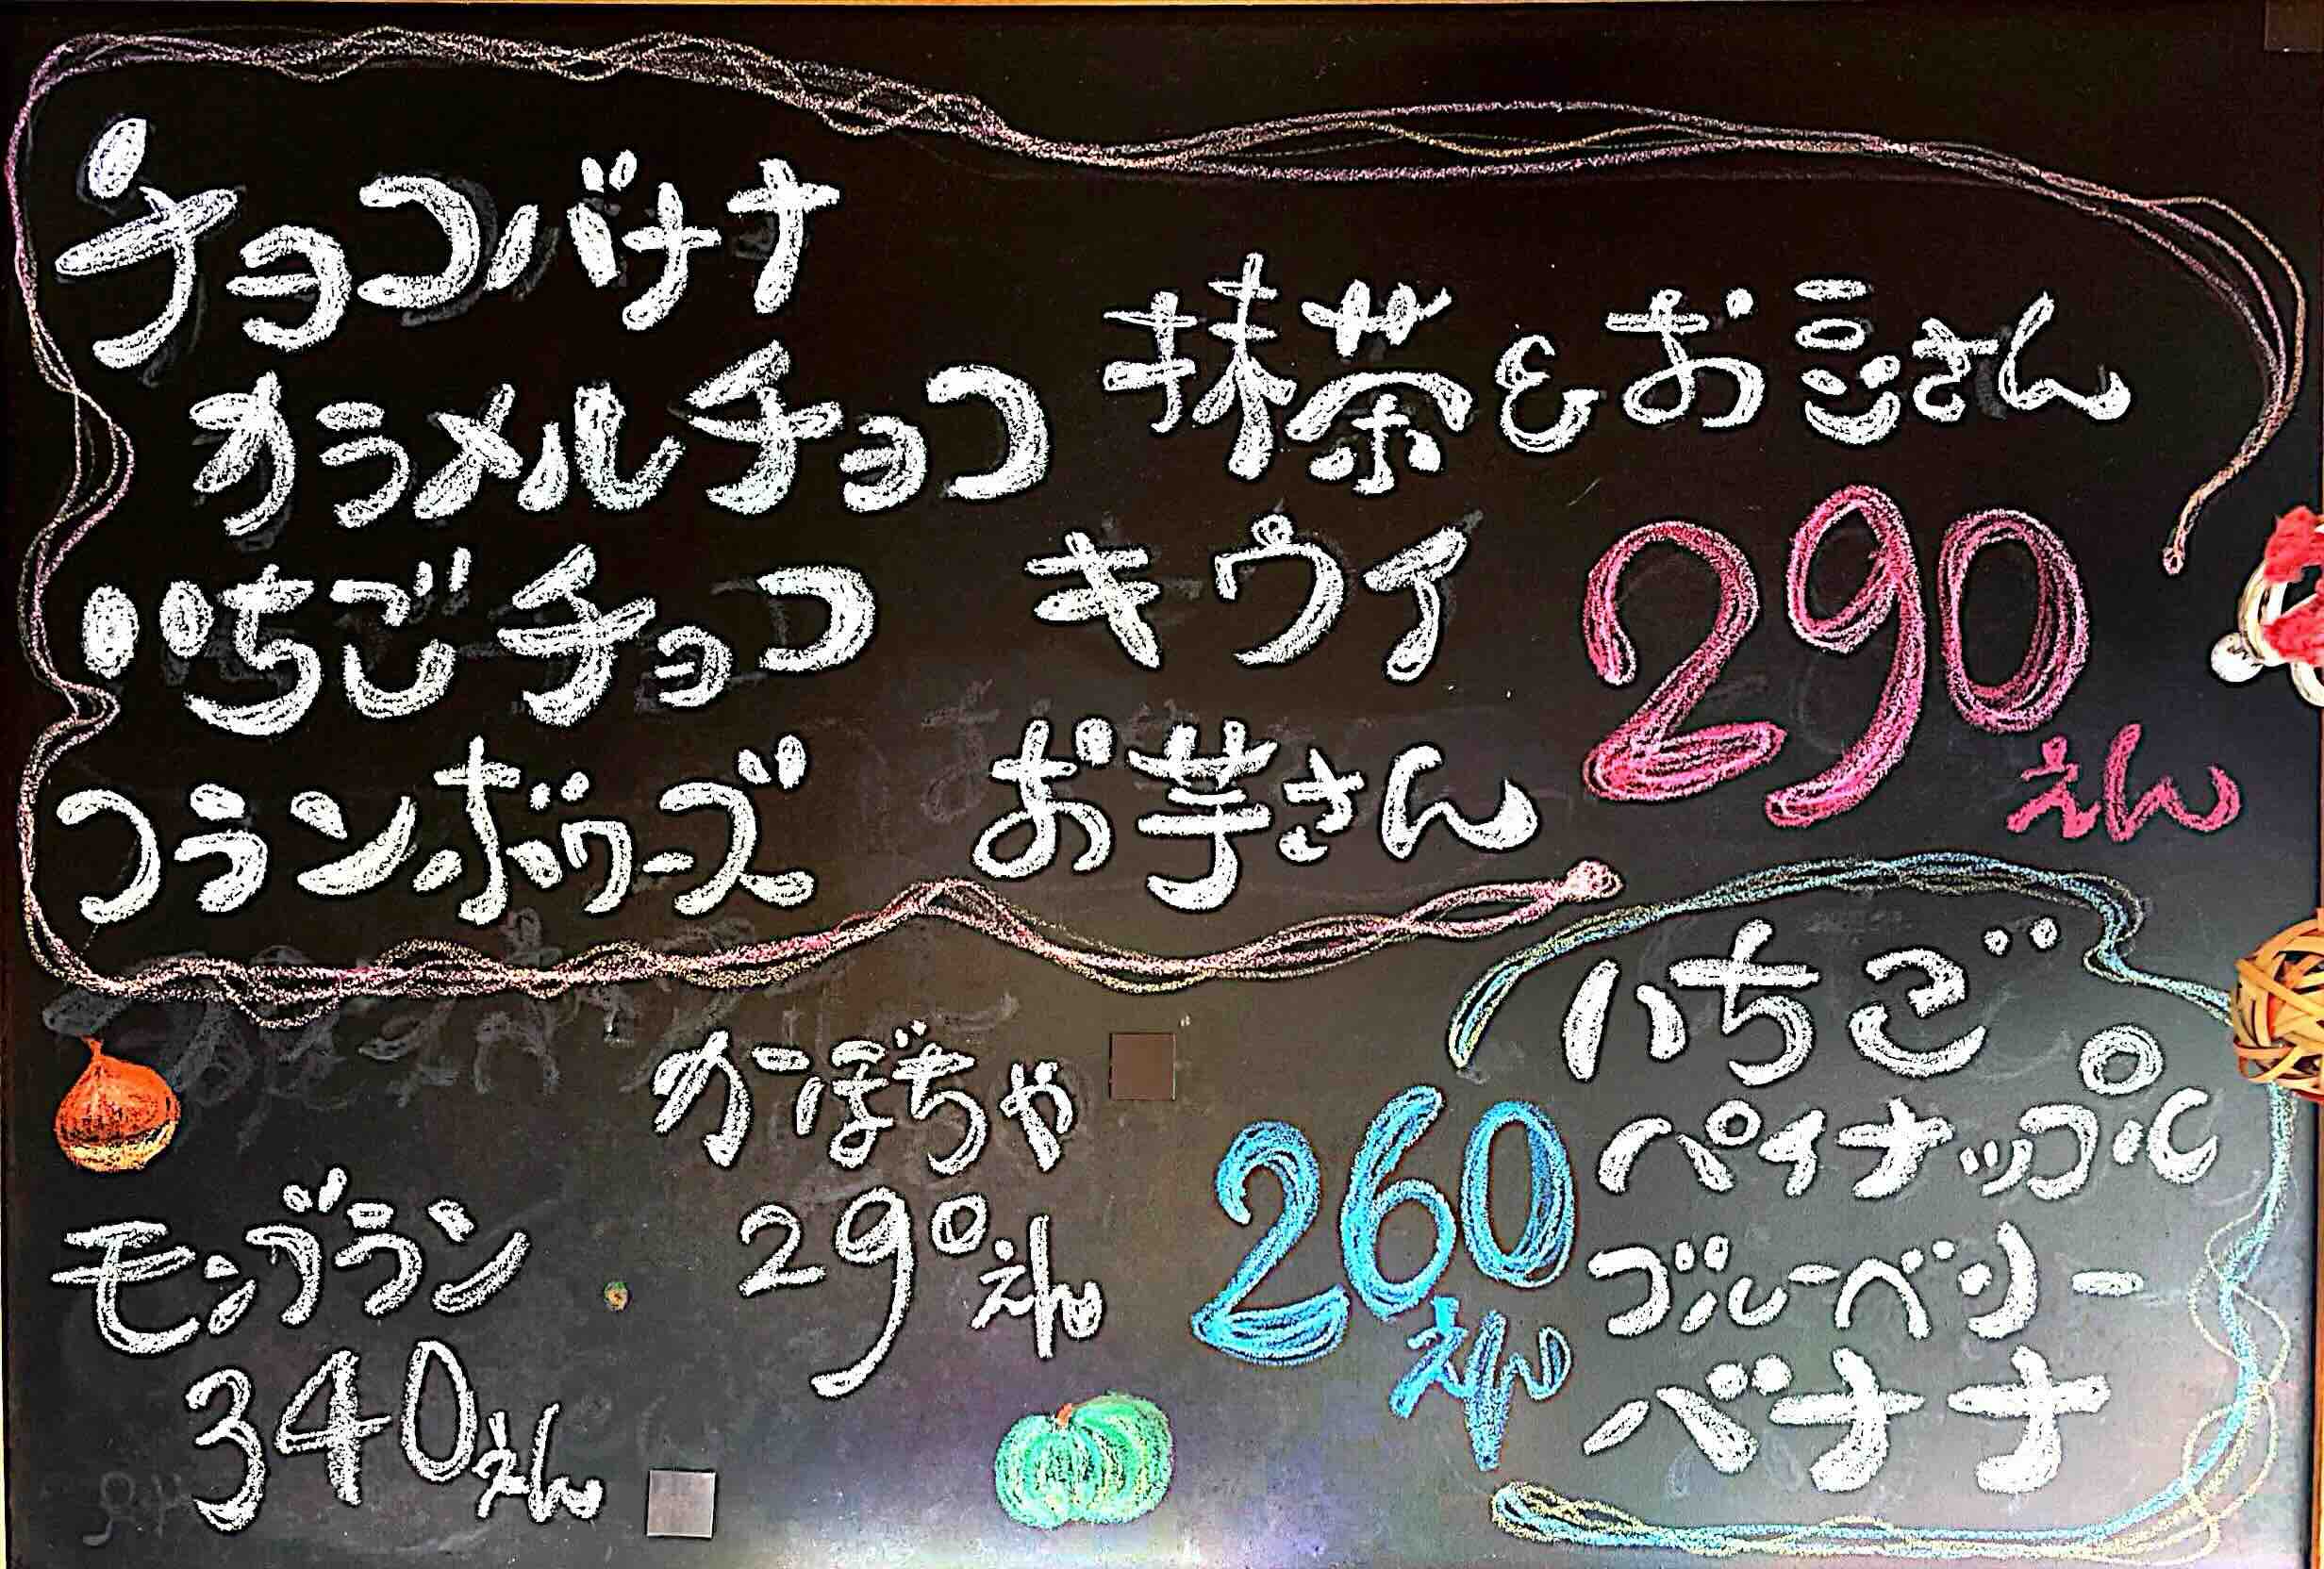 チョコバナナ
カラメルチョコ
いちごチョコ
フランボワーズ
抹茶&お豆さん
キウイ
お芋さん
290えん
かぼちゃ
290えん
モンブラン
340えん
いちご
パイナップル
ブルーベリー
バナナ
260えん